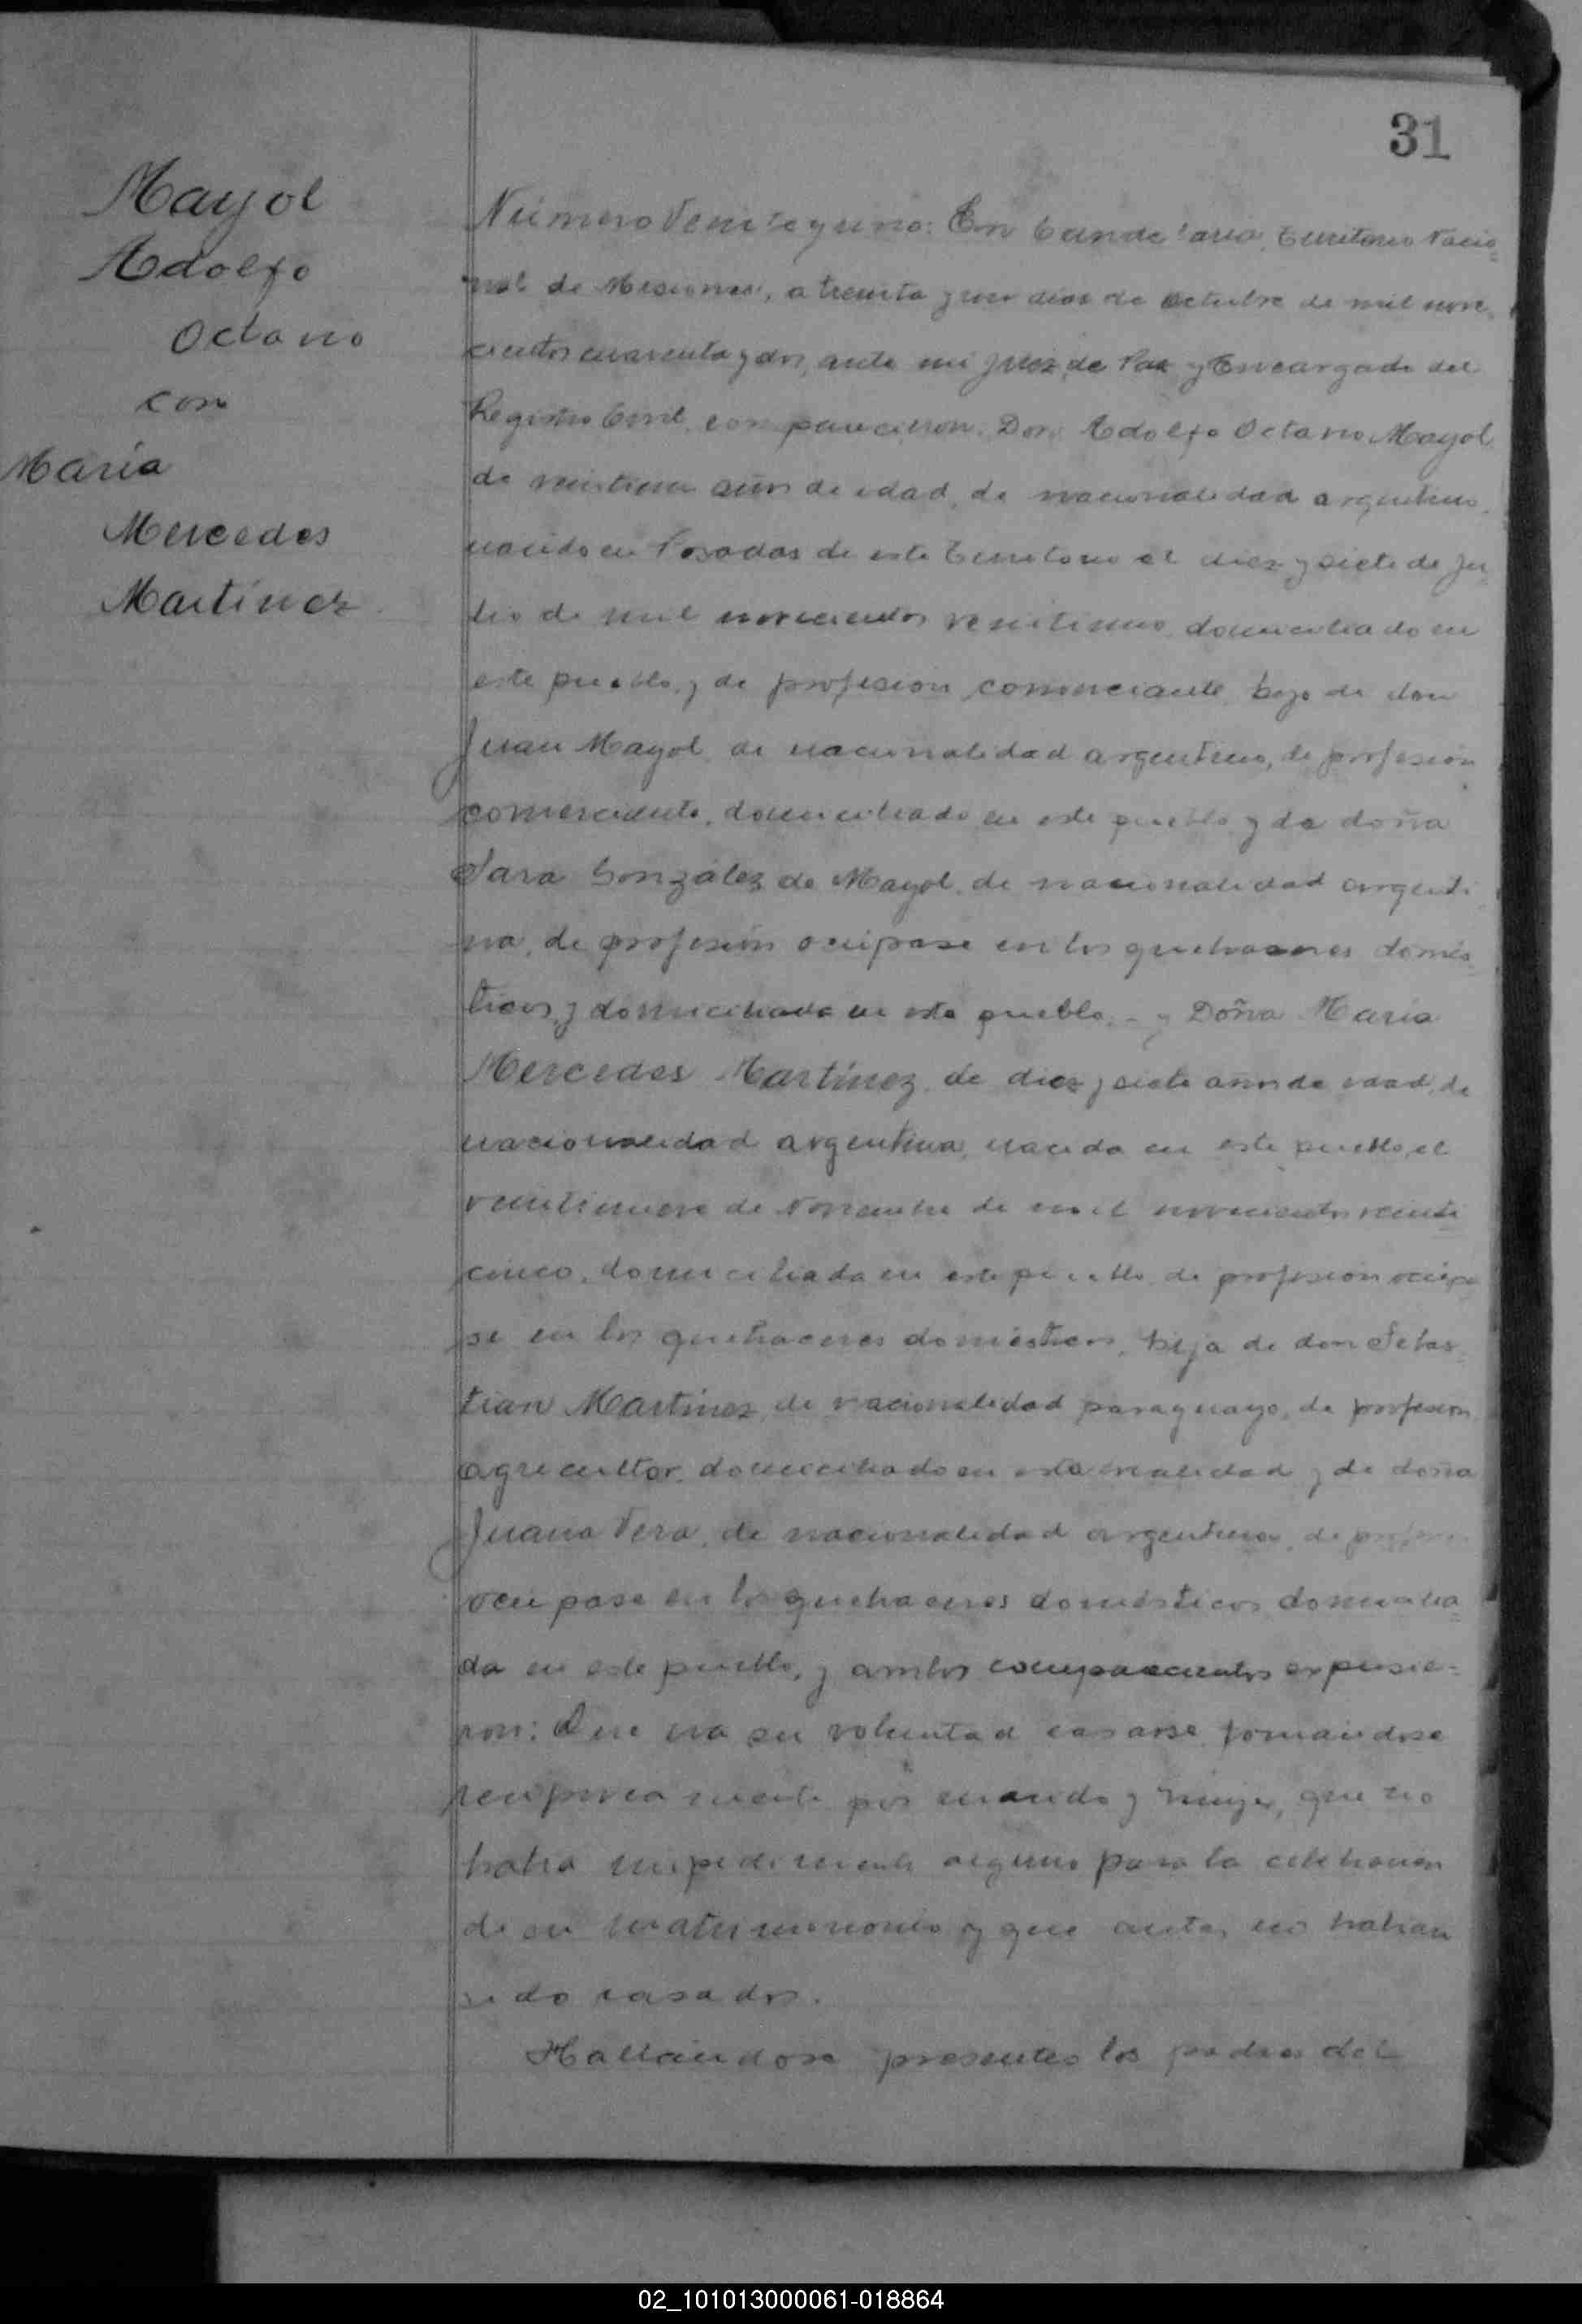 31
Mayol
Adolfo
Octavio
con
María
Mercedes
Martínez
Número Veinte y uno: En Candelaria, Territorio Nacio=
nal de Misiones, a treinta y un días de Octubre de mil nove=
cientos cuarenta y dos, ante mi Juez de Paz y Encargado del
Registro Civil, comparecieron: Don Adolfo Octavio Mayol
de veintiun años de edad, de nacionalidad argentino,
nacido en Posadas de este Territorio el diez y siete de Ju
lio de mil novecientos veintiuno, domiciliado en
este pueblo, y de profesión comerciante, hijo de don
Juan Mayol, de nacionalidad argentino, de profesión
comerciante, domiciliado en este pueblo y de doña
Sara González de Mayol, de nacionalidad argenti
na, de profesión ocúpase en los quehaceres domés
ticos, y domiciliada en este pueblo.- y Doña María
Mercedes Martínez, de diez y siete años de edad, de
nacionalidad argentina, nacida en este pueblo, el
veintinueve de Noviembre de mil novecientos veinti
cinco, domiciliada en este pueblo, de profesión ocúpa
se en los quehaceres domésticos, hija de don Sebas
tian Martínez, de nacionalidad paraguayo, de profesión
agricultor, domiciliado en esta localidad y de doña
Juana Vera, de nacionalidad argentina, de profesión
ocupase en los quehaceres domésticos, domicilia=
da en este pueblo, y ambos comparecientes expusie=
ron: Que era su voluntad casarse, tomándose
recíprocamente por marido y mujer, que no
había impedimento alguno para la celebración
de su matrimonio y que antes no habían
sido casados.
Hallándose presentes los padres del
02_101013000061-018864